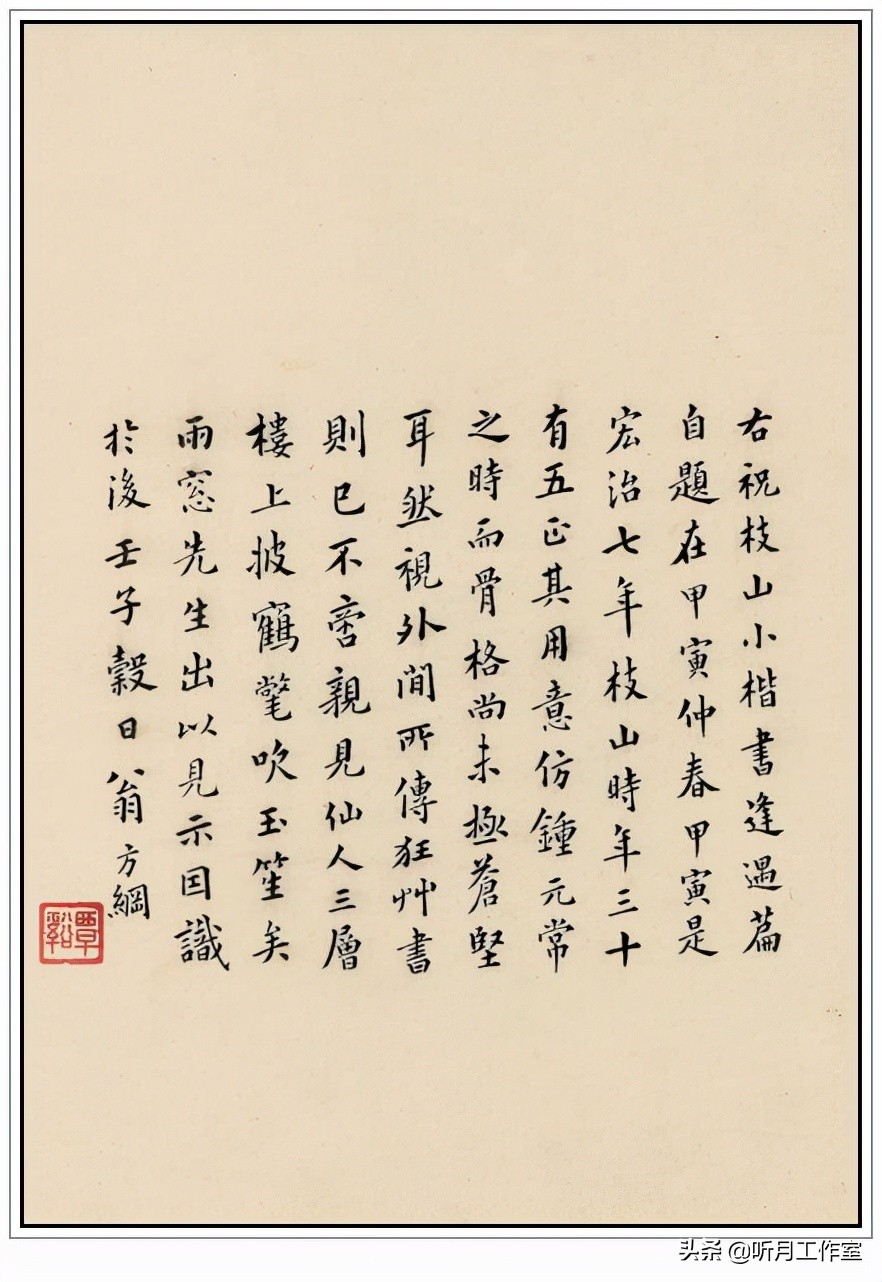 右祝枝山小楷書逢遇篇
自題在甲寅仲春甲寅是
宏治七年枝山時年三十
有五正其用意仿鍾元常
之時而骨格尚未極蒼堅
耳然視外間所傳狂艸書
則已不啻親見仙人三層
樓上披鶴氅吹玉笙矣
雨窓先生出以見示因識
於後壬子穀日翁方綱
覃谿
头条 @听月工作室